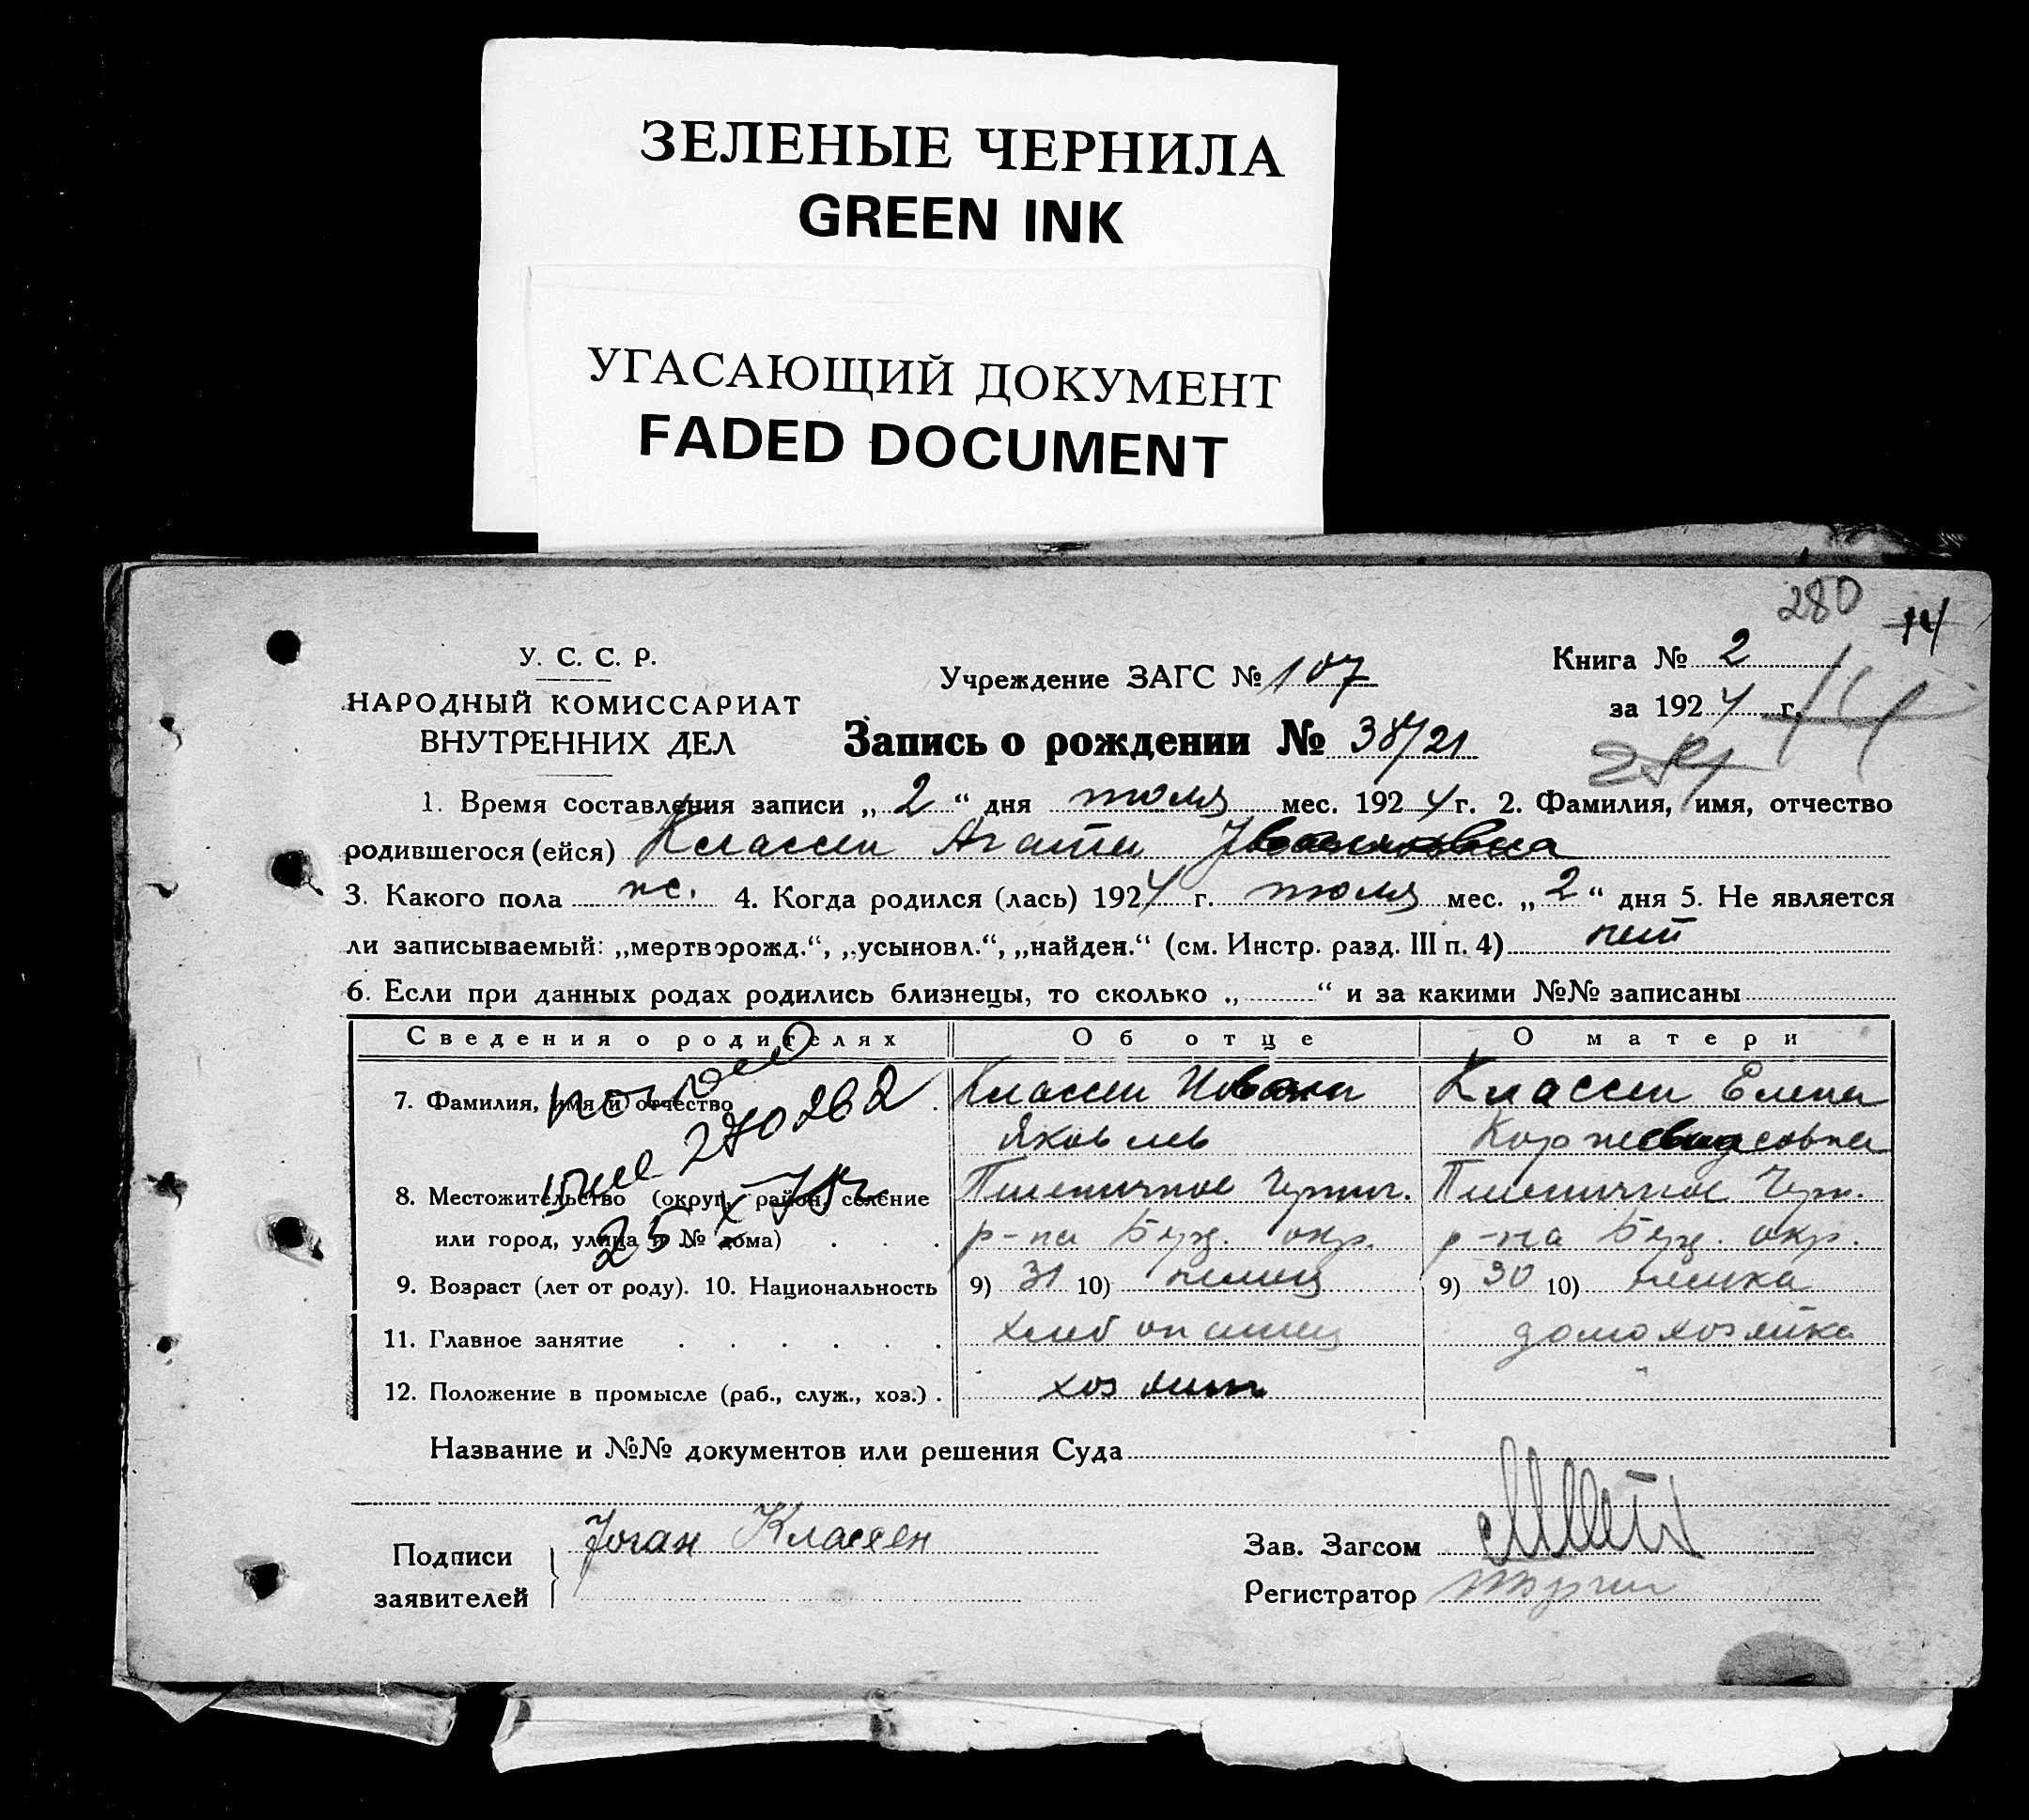 ЗЕЛЕНЫЕ ЧЕРНИЛА
GREEN INK
УГАСАЮЩИЙ ДОКУМЕНТ
FADED DOCUMENT
280 14
У. С. С. Р.
НАРОДНЫЙ КОМИССАРИАТ
ВНУТРЕННИХ ДЕЛ
Учреждение ЗАГС № 107
Книга № 2
за 1924 г.
Запись о рождении № 38/21
1. Время составления записи „ 2 “ дня июля мес. 1924 г. 2. Фамилия, имя, отчество
родившегося (ейся) Классен Агата Ивановна
3. Какого пола ж. 4. Когда родился (лась) 1924 г. июля мес. „ 2 “ дня 5. Не является
ли записываемый: „мертворожд.“, „усыновл.“, „найден.“ (см. Инстр. разд. III п. 4) нет
6. Если при данных родах родились близнецы, то сколько „ “ и за какими №№ записаны
Сведения о родителях Об отце О матери
7. Фамилия, имя и отчество Классен Иван Классен Елена
Яковлев
270262
8. Местожительство (округ, район, селение Пшеничное Пшеничное
или город, улица и № дома) р-на окр. р-на окр.
25
9. Возраст (лет от роду). 10. Национальность 9) 31 10) немец 9) 30 10) немка
11. Главное занятие хлебопашец домохозяйка
12. Положение в промысле (раб., служ., хоз.) хозяин
Название и №№ документов или решения Суда
Подписи заявителей Иоган Классен
Зав. Загсом
Регистратор